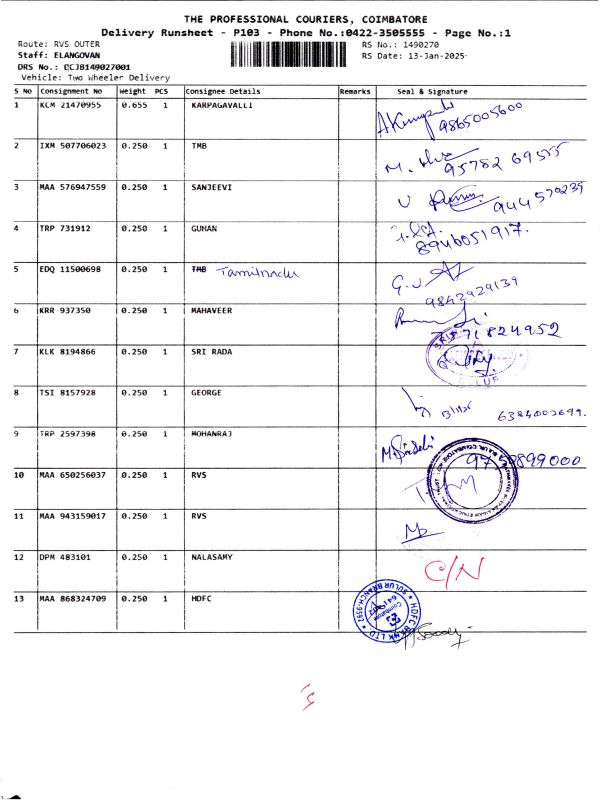 THE PROFESSIONAL COURIERS, COIMBATORE
Delivery Runsheet - P103 - Phone No.:0422-3505555 - Page No.:1
Route: RVS OUTER RS No.: 1490270
Staff: ELANGOVAN RS Date: 13-Jan-2025
DRS No.: CCJB149027001
Vehicle: Two Wheeler Delivery
S No Consignment No Weight PCS Consignee Details Remarks Seal & Signature
1 KCM 21470955 0.655 1 KARPAGAVALLI
9865005600
2 IXM 507706023 0.250 1 TMB
95782 69555
3 MAA 576947559 0.250 1 SANJEEVI
944 570239
4 TRP 731912 0.250 1 GUHAN
8946051917.
5 EDQ 11500698 0.250 1 TMB Tamilnadu
9842929139
6 KRR 937350 0.250 1 MAHAVEER
71824952
7 KLK 8194866 0.250 1 SRI RADA
8 TSI 8157928 0.250 1 GEORGE
6384002699.
9 TRP 2597398 0.250 1 MOHANRAJ
899000
10 MAA 650256037 0.250 1 RVS
11 MAA 943159017 0.250 1 RVS
12 DPM 483101 0.250 1 NALASAMY
C/N
13 MAA 868324709 0.250 1 HDFC
HDFC BANK LTD
SULUR BRANCH-9397
Coimbatore